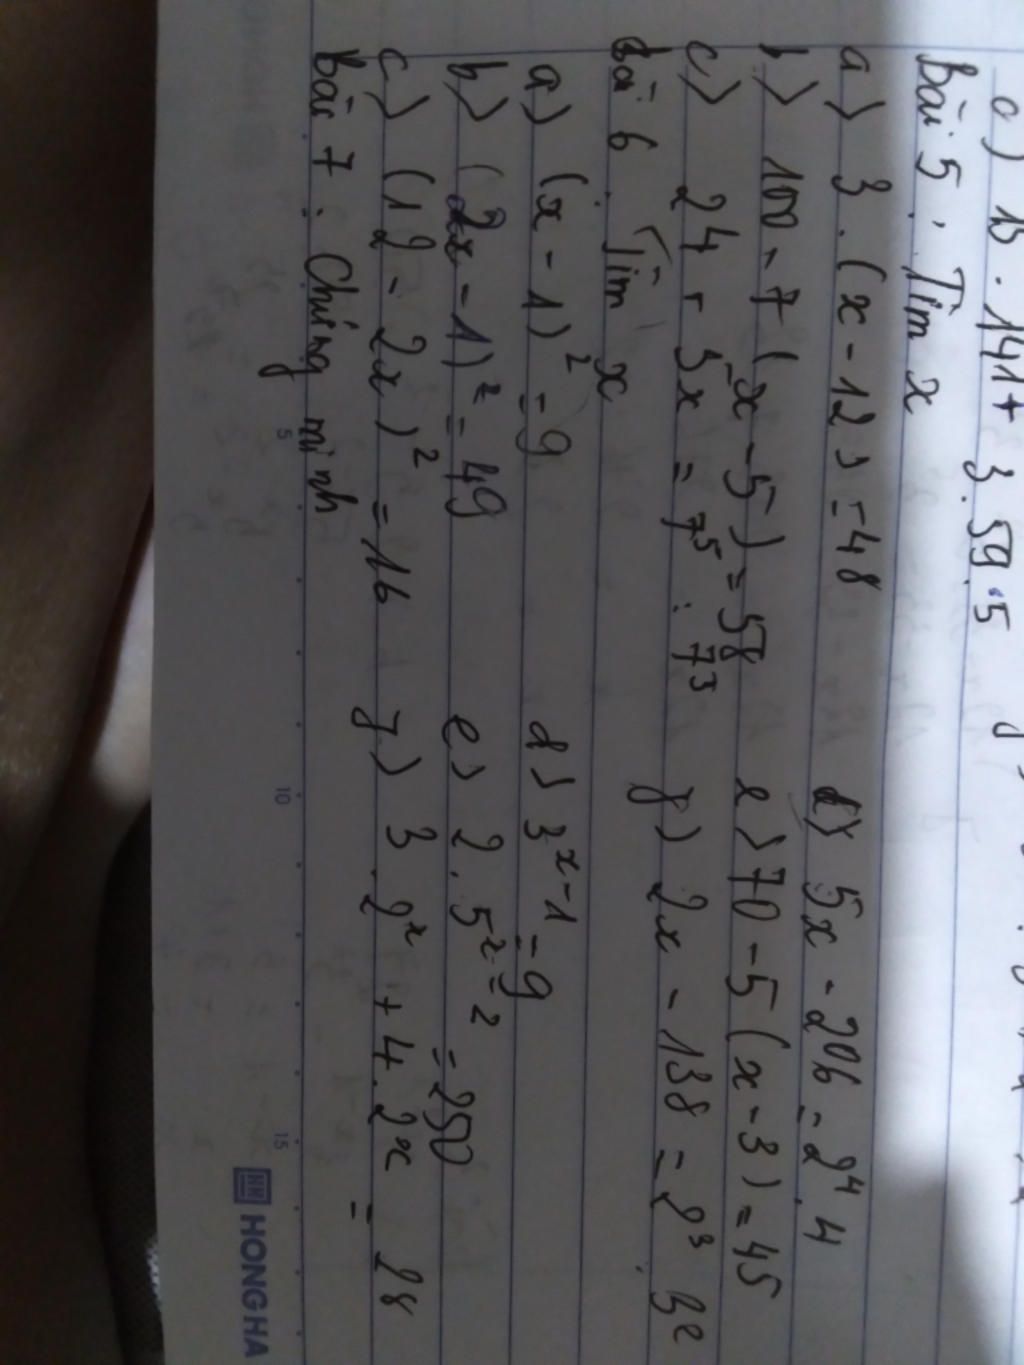 a) 15 . 141 + 3 . 59 . 5
Bài 5 . Tìm x
a) 3 . (x - 12) = 48 d) 5x - 206 = 2⁴ . 4
b) 100 - 7 (x - 5) = 58 e) 70 - 5 (x - 3) = 45
c) 24 + 3x = 7⁵ : 7³ f) 2x - 138 = 2³ . 3²
Bài 6 . Tìm x
a) (x - 1)² = 9 d) 3ˣ⁻¹ = 9
b) (2x - 1)² = 49 e) 2 . 5ˣ⁻² = 250
c) (12 - 2x)² = 16 f) 3 . 2ˣ + 4 . 2x = 28
Bài 7 . Chứng minh
5 10 15
HONGHA